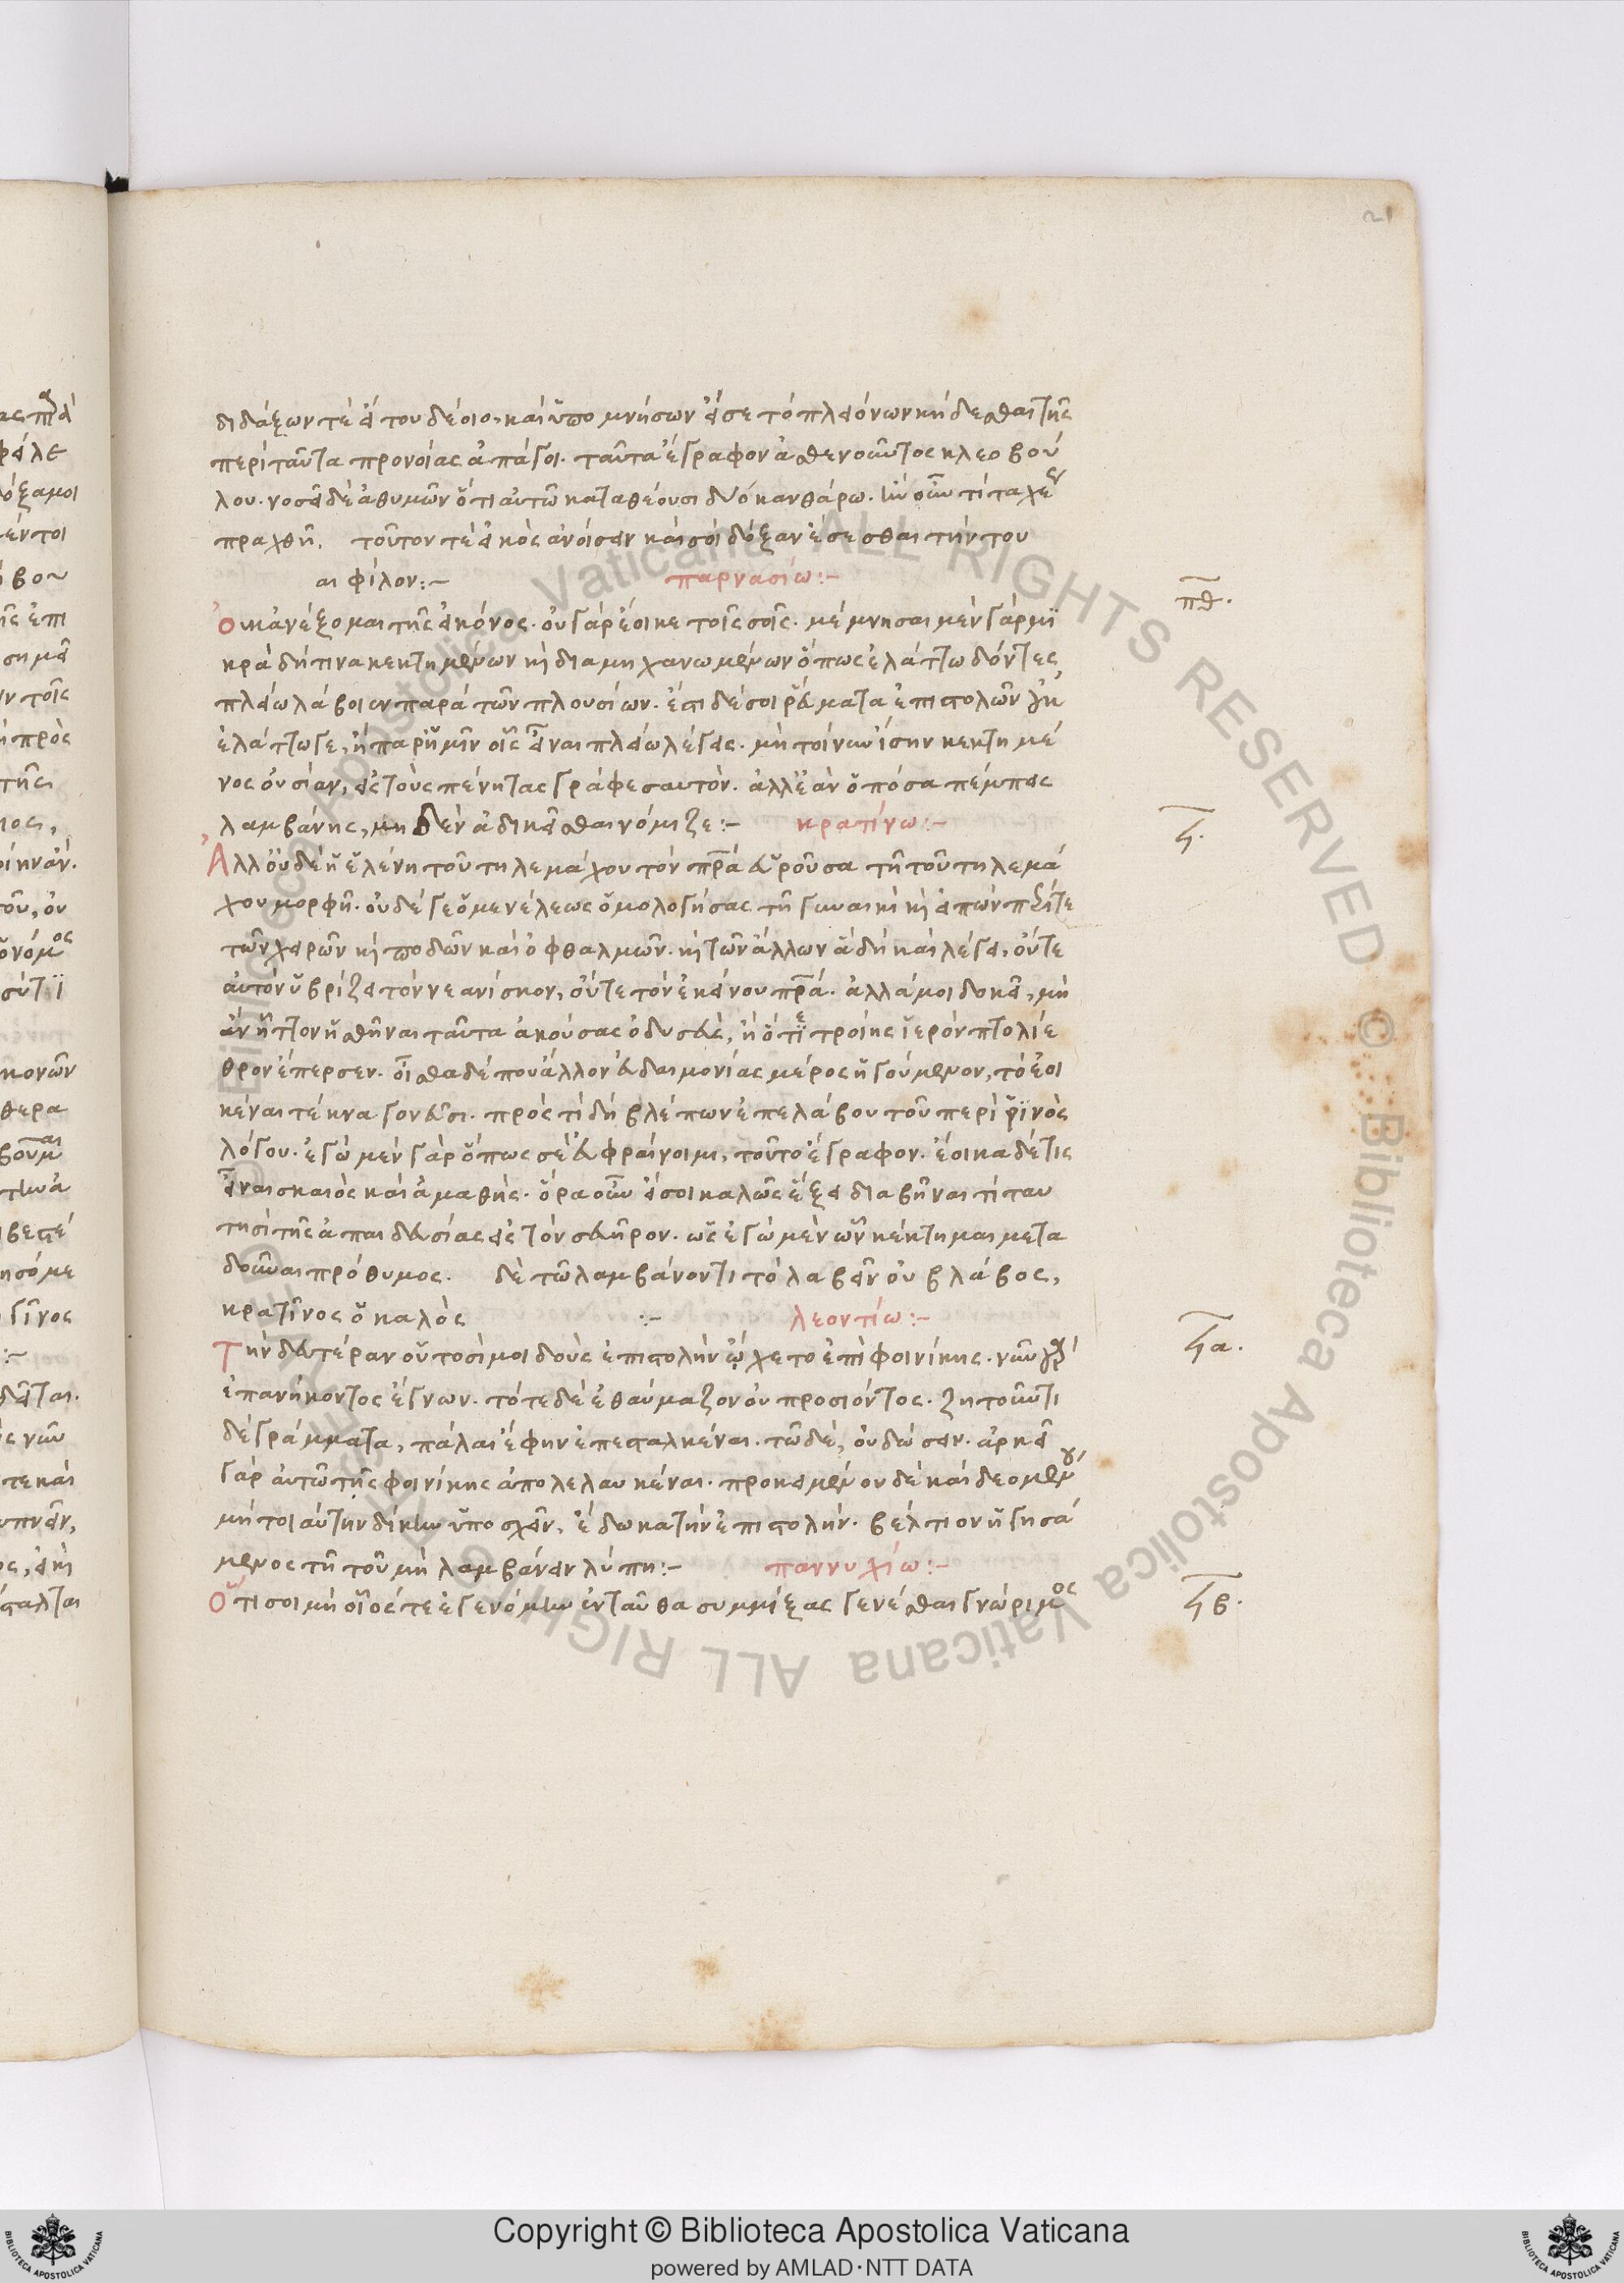 21
διδάξων τὲ εἴ του δέοιο, καὶ ὑπομνήσων εἴ σε τὸ πλειόνων κήδεσθαι τῆς
περὶ ταῦτα προνοίας ἀπάγοι. ταῦτα ἔγραφον ἀσθενοῦντος κλεοβού
λου. νοσεῖ δὲ ἀθυμῶν ὅτι αὐτῶ καταθέουσι δύο κανθάρω. ἵν οὖν τί ταχὲς
πραχθῆ, τοῦτον τὲ εἰκὸς ἀνοίσειν καὶ σοὶ δόξαν ἔσεσθαι τὴν του
αι φίλον:~ παρνασίω:~
πθ.
Οὐκ ἀνέξομαι τῆς εἰκόνος. οὐ γὰρ ἔοικε τοῖς σοῖς. μέμνησαι μὲν γὰρ μι
κρὰ δή τινα κεκτημένων κὴ διαμηχανωμένων ὅπως ἐλάττω δόντες
πλείω λάβοιεν παρὰ τῶν πλουσίων. ἔστι δέ σοι ῥεύματα ἐπιστολῶν
ἐλάττω γε, ἢ παρ' ἡμῖν οἷς εἶναι πλείω λέγεις. μὴ τοίνυν ἴσην κεκτημέ
νος οὐσίαν, εἰς τοὺς πένητας γράφε σαυτόν. ἀλλ' ἐὰν ὁπόσα πέμπεις
λαμβάνης, μηδὲν ἀδικεῖσθαι νόμιζε:~ κρατίνω:~
ϟ.
Ἀλλ' οὐδὲ ἡ ἑλένη τοῦ τηλεμάχου τὸν πρα εὑροῦσα τῆ τοῦ τηλεμά
χου μορφῆ. οὐδέ γε ὁ μενέλεως ὁμολογήσας τῆ γυναικὶ κὴ εἰπὼν πέρι τε
τῶν χειρῶν κὴ ποδῶν καὶ ὀφθαλμῶν. κὴ τῶν ἄλλων ἃ δὴ καὶ λέγει, οὔτε
αὐτὸν ὑβρίζει τὸν νεανίσκον, οὔτε τὸν ἐκείνου πρα. ἀλλά μοι δοκεῖ, μὴ
ἂν ἧττον ἡσθῆναι ταῦτα ἀκούσας ὀδυσεὺς, ἢ ὅτι τροίης ἱερὸν πτολίε
θρον ἔπερσεν. οἶσθα δέ που ἄλλον εὐδαιμονίας μέρος ἡγούμενον, τὸ ἐοι
κέναι τέκνα γονεῦσι. πρὸς τί δὴ βλέπων ἐπελάβου τοῦ περὶ ῥινὸς
λόγου. ἐγὼ μὲν γὰρ ὅπως σὲ εὐφραίνοιμι, τοῦτο ἔγραφον. ἔοικα δέ τις
εἶναι σκαιὸς καὶ ἀμαθής. ὅρα οὖν εἴ σοι καλῶς ἕξει διαβῆναι τί ταυ
τησὶ τῆς ἀπαιδευσίας εἰς τὸν σευῆρον. ὡς ἐγὼ μὲν ὧν κέκτημαι μετα
δοῦναι πρόθυμος. δὲ τῶ λαμβάνοντι τὸ λαβεῖν οὐ βλάβος,
κρατῖνος ὁ καλὸς :~ λεοντίω:~
ϟα.
Τὴν δευτέραν οὑτοσί μοι δοὺς ἐπιστολὴν ᤤχετο ἐπὶ φοινίκης. νῦν
ἐπανήκοντος ἔγνων. τότε δὲ ἐθαύμαζον οὐ προσιόντος. ζητοῦντι
δὲ γράμματα, πάλαι ἔφην ἐπεσταλκέναι. τῶ δὲ, οὐ δώσειν. ἀρκεῖ
γὰρ αὐτῶ τῆς φοινίκης ἀπολελαυκέναι. προκειμένου δὲ καὶ δεομένου
μή τοιαύτην δίκην ὑποσχεῖν, ἔδωκα τὴν ἐπιστολήν. βέλτιον ἡγησά
μενος τῆ τοῦ μὴ λαμβάνειν λύπη:~ παννυχίω:~
Ὅτι σοι μὴ οἷός τε ἐγενόμην ἐνταῦθα συμμίξας γενέσθαι γνώριμος
ϟβ.
Copyright © Biblioteca Apostolica Vaticana
powered by AMLAD·NTT DATA